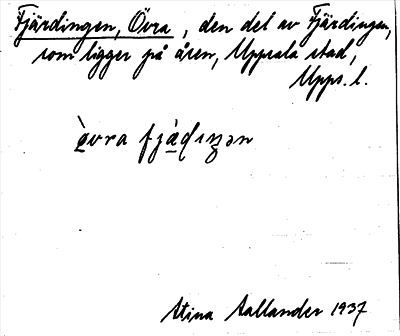 Fjärdingen, Övra, den del av Fjärdingen,
som ligger på åsen, Uppsala stad,
Upps. l.
Stina Hallander 1937